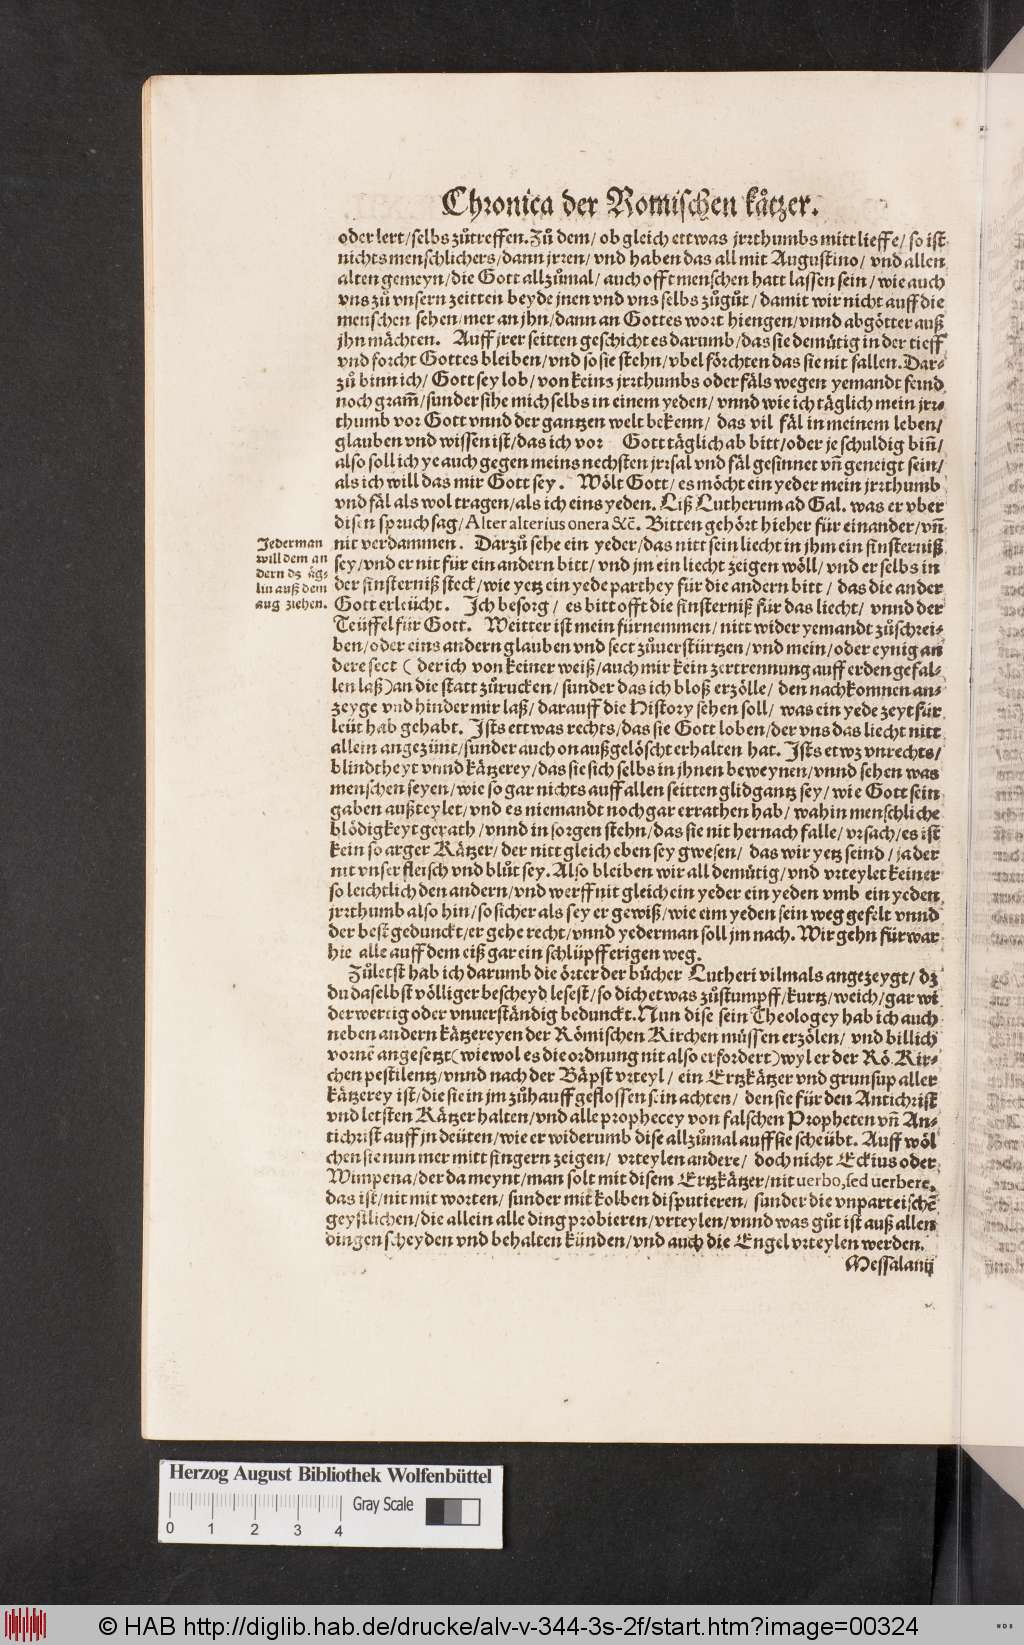 Chronica der Romischen kåtzer.
oder lert/selbs zůtreffen. Zů dem/ ob gleich ettwas jrrthumbs mitt lieffe/ so ist
nichts menschlichers/dann jrren/ vnd haben das all mit Augustino/ vnd allen
alten gemeyn/die Gott allzůmal/ auch offt menschen hatt lassen sein/ wie auch
vns zů vnsern zeitten beyde jnen vnd vns selbs zůgůt/ damit wir nicht auff die
menschen sehen/mer an jhn/dann an Gottes wort hiengen/vnnd abgötter auß
jhn mächten. Auff jrer seitten geschicht es darumb/das sie demůtig in der tieff
vnd forcht Gottes bleiben/vnd so sie stehn/ vbel förchten das sie nit fallen. Dar-
zů binn ich/ Gott sey lob/ von keins jrrthumbs oder fäls wegen yemandt feind
noch gram̃/sunder sihe mich selbs in einem yeden/ vnnd wie ich täglich mein jrr-
thumb vor Gott vnnd der gantzen welt bekenn/ das vil fäl in meinem leben/
glauben vnd wissen ist/das ich vor Gott täglich ab bitt/oder je schuldig biñ/
also soll ich ye auch gegen meins nechsten jrrsal vnd fäl gesinnet vñ geneigt sein/
als ich will das mir Gott sey. Wölt Gott/ es möcht ein yeder mein jrrthumb
vnd fäl als wol tragen/als ich eins yeden. Liß Lutherum ad Gal. was er vber
disen spruch sag/Alter alterius onera &c̃. Bitten gehört hieher für einander/vñ
nit verdammen. Darzů sehe ein yeder/das nitt sein liecht in jhm ein finsterniß
sey/vnd er nit für ein andern bitt/ vnd jm ein liecht zeigen wöll/ vnd er selbs in
der finsterniß steck/wie yetz ein yede parthey für die andern bitt/ das die ander
Gott erleücht. Ich besorg/ es bitt offt die finsterniß für das liecht/ vnnd der
Teüffel für Gott. Weitter ist mein fürnemmen/ nitt wider yemandt zůschrei-
ben/oder eins andern glauben vnd sect zůuerstürtzen/vnd mein/oder eynig an
dere sect ( der ich von keiner weiß/auch mir kein zertrennung auff erden gefal-
len laß) an die statt zůrucken/ sunder das ich bloß erzölle/ den nachkomnen an-
zeyge vnd hinder mir laß/ darauff die History sehen soll/ was ein yede zeyt für
leüt hab gehabt. Ists ettwas rechts/das sie Gott loben/der vns das liecht nitt
allein angezünt/sunder auch on außgelöscht erhalten hat. Ists etwz vnrechts/
blindtheyt vnnd kätzerey/das sie sich selbs in jhnen beweynen/vnnd sehen was
menschen seyen/wie so gar nichts auff allen seitten glidgantz sey/ wie Gott sein
gaben außteylet/vnd es niemandt noch gar errathen hab/ wahin menschliche
blödigkeyt gerath/vnnd in sorgen stehn/das sie nit hernach falle/ vrsach/es ist
kein so arger Kätzer/ der nitt gleich eben sey gwesen/ das wir yetz seind/ ja der
nit vnser fleisch vnd blůt sey. Also bleiben wir all demütig/vnd vrteylet keiner
so leichtlich den andern/vnd werff nit gleich ein yeder ein yeden vmb ein yeden
jrrthumb also hin/so sicher als sey er gewiß/wie eim yeden sein weg gefelt vnnd
der best gedunckt/er gehe recht/vnnd yederman soll jm nach. Wir gehn fürwar
hie alle auff dem eiß gar ein schlüpfferigen weg.
Jederman
will dem an
dern dz äg-
lin auß dem
aug ziehen.
Zůletst hab ich darumb die örter der bücher Lutheri vilmals angezeygt/ dz
du daselbst völliger bescheyd lesest/so dich etwas zůstumpff/kurtz/weich/gar wi
derwertig oder vnuerständig bedunckt. Nun dise sein Theologey hab ich auch
neben andern kätzereyen der Römischen Kirchen müssen erzölen/ vnd billich
vorne angesetzt(wiewol es die ordnung nit also erfordert) wyl er der Rö. Kir-
chen pestilentz/vnnd nach der Bäpst vrteyl/ ein Ertzkätzer vnd grunsup aller
kätzerey ist/die sie in jm zůhauff geflossen sein achten/ den sie für den Antichrist
vnd letsten Kätzer halten/vnd alle prophecey von falschen Propheten vñ An-
tichrist auff jn deüten/wie er widerumb dise allzůmal auff sie scheübt. Auff wöl
chen sie nun mer mitt fingern zeigen/ vrteylen andere/ doch nicht Eckius oder
Wimpena/der da meynt/man solt mit disem Ertzkätzer/nit uerbo, sed uerbere,
das ist/nit mit worten/ sunder mit kolben disputieren/ sunder die vnparteischẽ
geystlichen/die allein alle ding probieren/vrteylen/vnnd was gůt ist auß allen
dingen scheyden vnd behalten künden/vnd auch die Engel vrteylen werden.
Messalanij
Herzog August Bibliothek Wolfenbüttel
Gray Scale
0 1 2 3 4
© HAB http://diglib.hab.de/drucke/alv-v-344-3s-2f/start.htm?image=00324